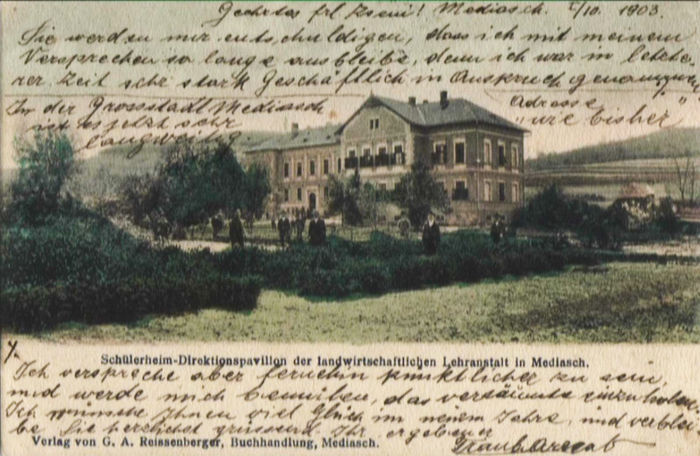 Geehrtes frl Eseni! Mediasch. 5/10. 1903.
Sie werden mir entschuldigen, dass ich mit meinem
Versprechen so lange ausbleibe, denn ich war in letzte-
rer Zeit sehr stark Geschäftlich in Anspruch genommen
In der Grossstadt Mediasch
ist es jetzt sehr
langweilig
Adresse
"wie bisher"
Schülerheim-Direktionspavillon der landwirtschaftlichen Lehranstalt in Mediasch.
Ich verspreche aber fernerhin pünktlicher zu sein,
und werde mich bemühen, das versäumte einzuholen.
Ich wünsche Ihnen viel Glück im neuem Jahre, und verblei-
be Sie herzlichst grüssend Ihr ergebener
Verlag von G. A. Reissenberger, Buchhandlung, Mediasch.